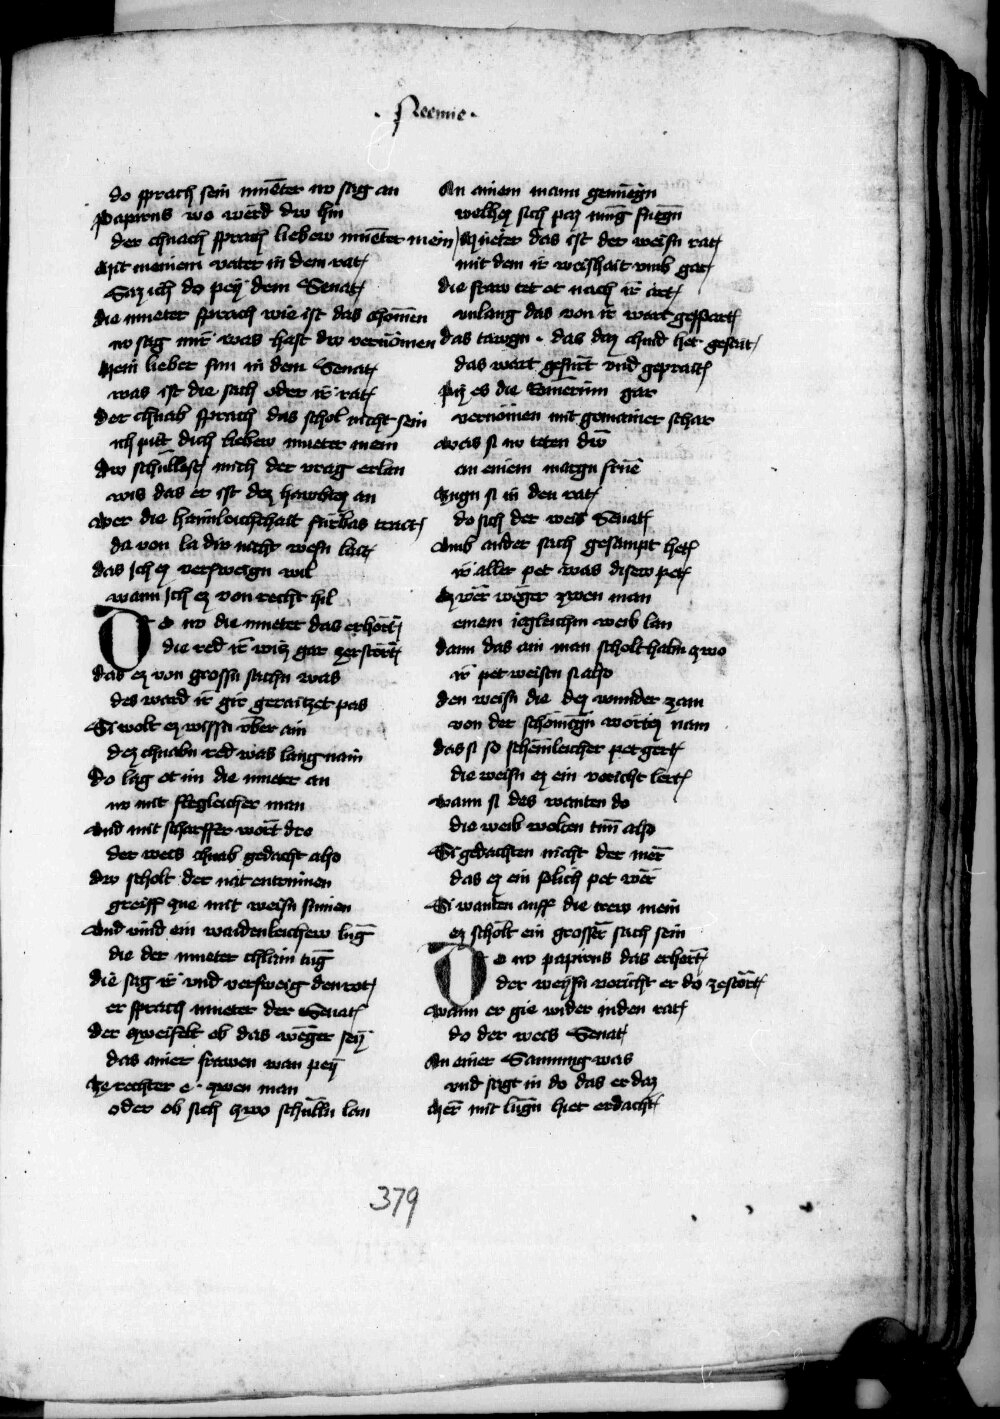 . Neemie .
do sprach sein mueter no sag an
Papirus wo werd dw hin
der chnach sprach liebew mueter mein
Mit meinem vater in dem rat
Saz ich do pey dem Senat
die mueter sprach wie ist das chomen
no sag mir was hast dw vernomen
Mein lieber sun in dem Senat
was ist die sach oder ir rat
der chnab sprach das schol nicht sein
ich pitt dich liebew mueter mein
dw schullest mich der vrag erlan
wis das er ist dez hawbtez an
Wer die haimleichchait furbas tract
da von la dir nicht wesn lact
das ich ez versweign wil
wann ich ez von recht hil
Do no die mueter das erhort
die red ir wiz gar zerstort
das ez von grossn sachn was
des ward ir gir geraitzet pas
Si wolt ez wissn vber ain
dez chnabn red was lang nain
do lag ot im die mueter an
no mit flegleicher man
Vnd mit scharffer wort dro
der weis chnab gedacht also
dw scholt der nät entrinnen
greiff zue mit weisn sinnen
Vnd vind ein waidenleichew lug
die der mueter chlain tug
die sag ir vnd versweig den rot
er sprach mueter der Senat
der zweifelt ob das weger sey
das ainer frawen wan pey
Ze rechter e zwen man
oder ob sich zwo schulln lan
An ainem mann genuegn
welhez sich paz mug fuegn
Mueter das ist der weisn rat
mit dem ir weishait vmb gat
die fraw tet ot nach ir art
vnlang das von ir wart gespart
das tawgn . das daz chind het geseit
das wart gefurt vnd geprait
Piz es die Romerinn gar
vernomen mit gemainer schar
Was si no teten dro
an einem margn frue
Zugn si in den rat
do sich der weis Senat
Vmb ander sach gesampt het
ir aller pet was disew pet
Ez wer weger zwen man
einem igleichm weib lan
dann das ain man scholt habn zwo
ir pet weistn si also
den weisn die dez wunder zam
von der schonugn wortez nam
das si so schemleicher pet gert
die weisn ez ein voricht lert
Wann si des wanten do
die weib wolten tun also
Si gedachten nicht der mer
das ez ein solich pet wer
Si wanten auff die trew mein
ez scholt ein grosser sach sein
Do no papirus das erhort
der weysn voricht er do zestort
Wann er gie wider in den rat
do der weis Senat
An einer Samnung was
vnd sagt in do das er daz
Mer mit lugn hiet erdacht
379